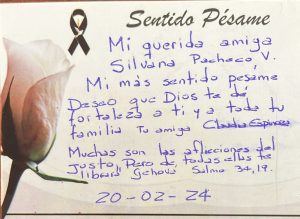 Sentido Pésame
Mi querida amiga
Silvana Pacheco, V.
Mi más sentido pesame
Deseo que Dios te de
fortaleza a ti y a toda tu
familia Tu amiga Claudia Espinoza
Muchas son las aflicciones del
justo, Pero de todas ellas te
librará Jehová Salmo 34,19.
20-02-24